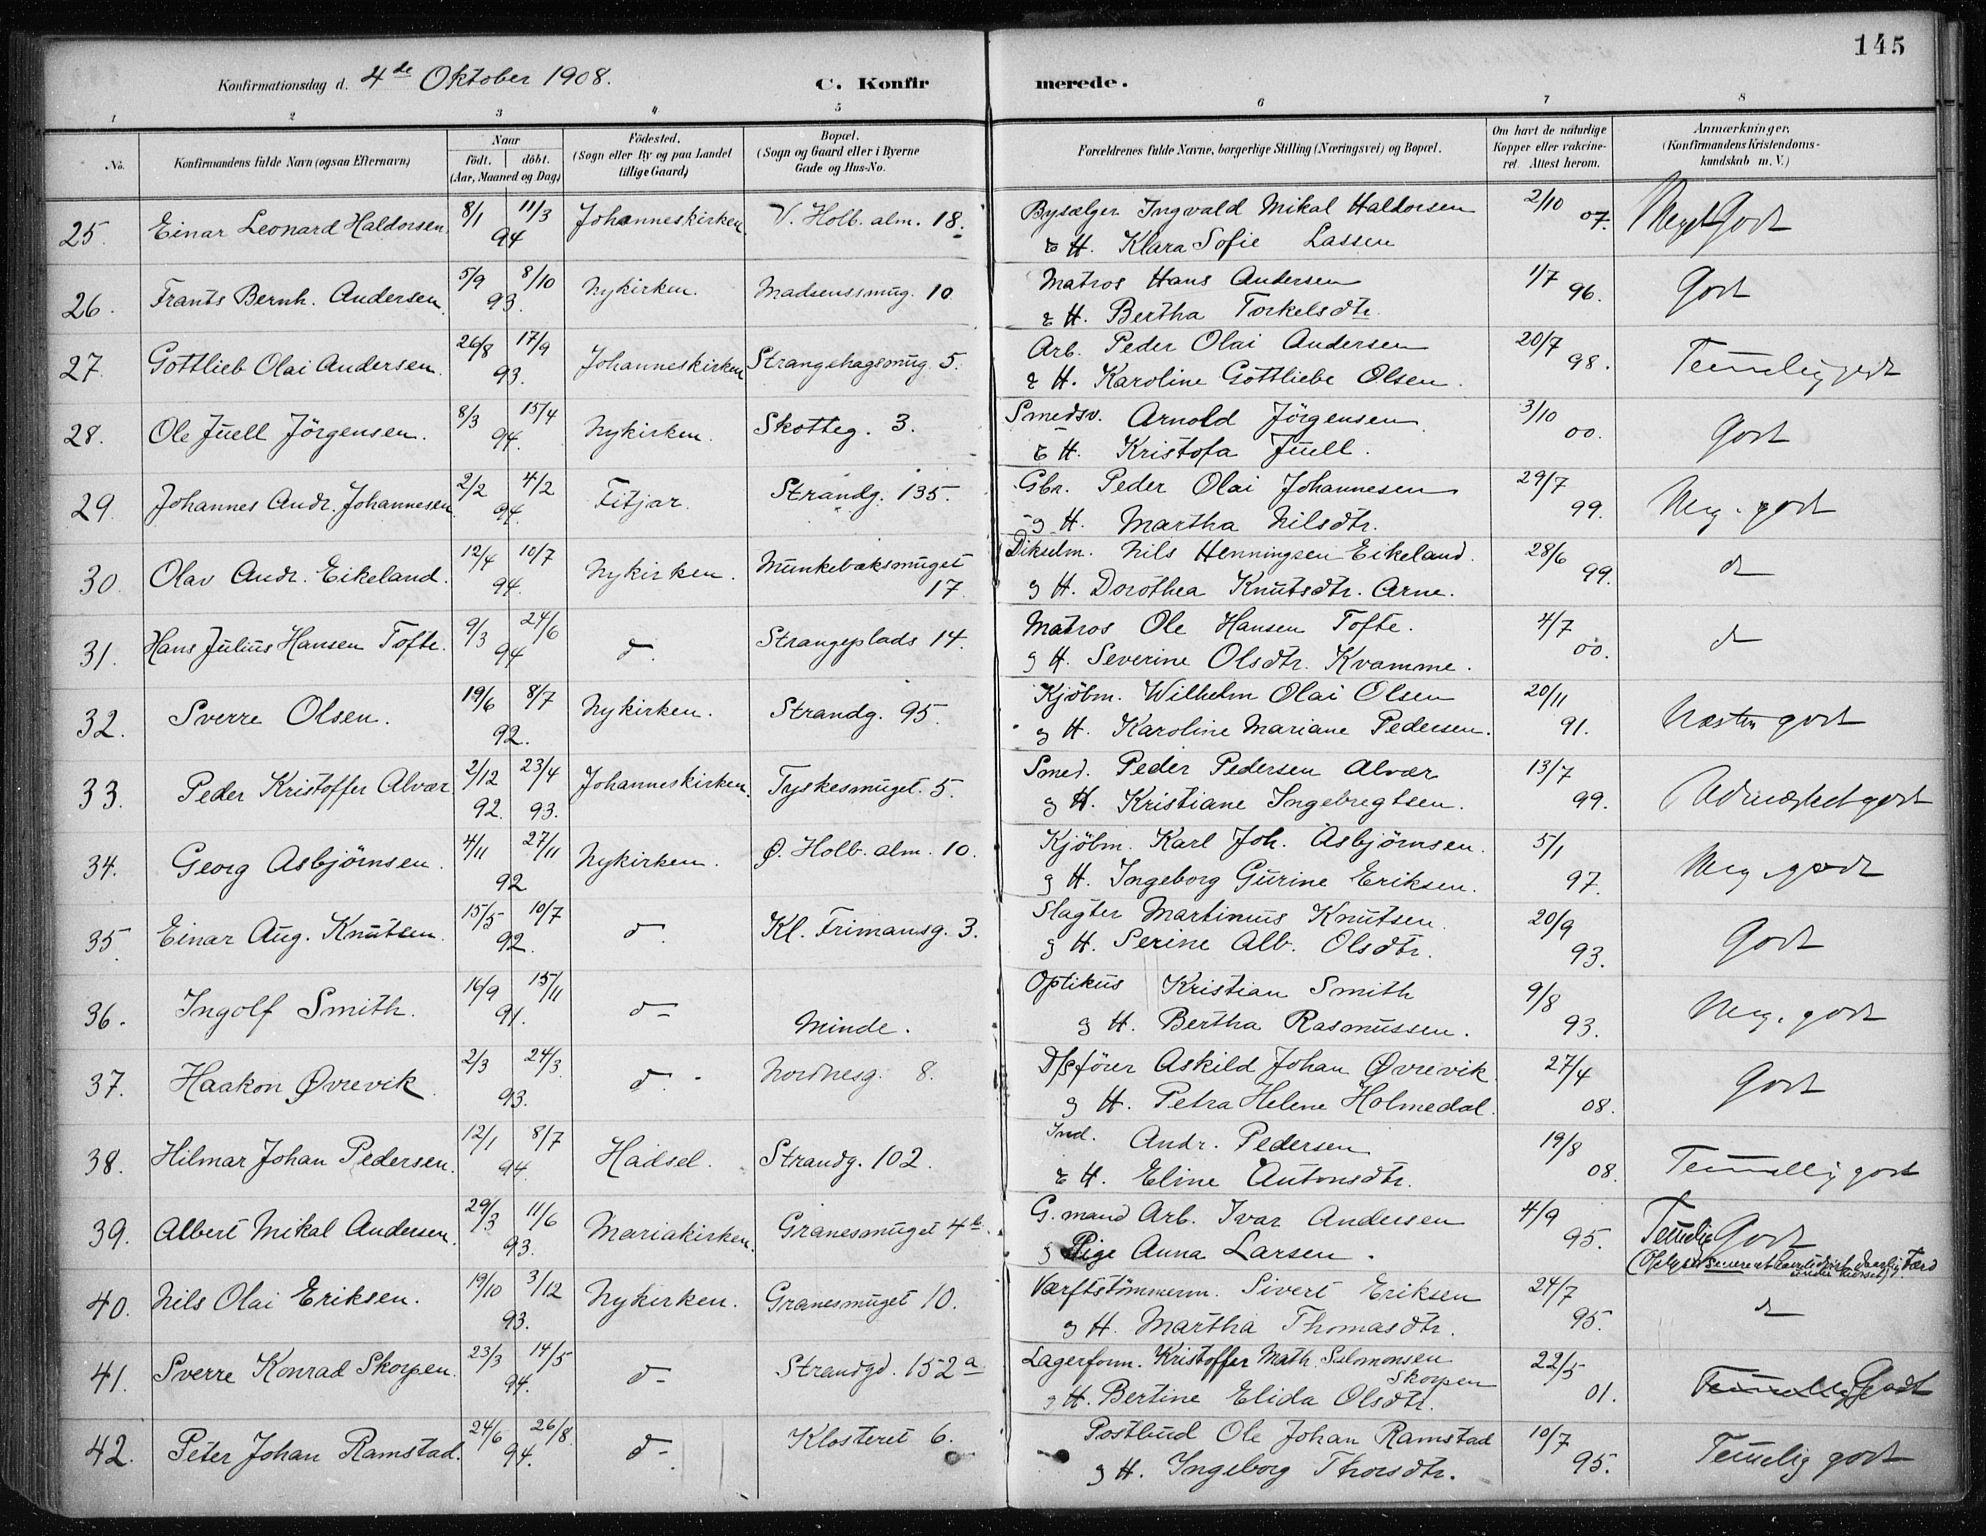 145
Konfirmationsdag d. 4de Oktober 1908. C. Konfirmerede.
1 2 3 4 5 6 7 8
No. Konfirmandens fulde Navn (ogsaa Efternavn) Naar født. døbt. (Aar, Maaned og Dag) Födested. (Sogn eller By og paa Landet tillige Gaard) Bopæl. (Sogn og Gaard eller i Byerne Gade og Hus-No. Forældrenes fulde Navne, borgerlige Stilling (Næringsvei) og Bopæl. Om havt de naturlige Kopper eller vakcineret. Attest herom. Anmærkninger. (Konfirmandens Kristendomskundskab m. V.)
25. Einar Leonard Haldorsen. 8/1 11/3 94 Johanneskirken. V. Holb. alm. 18. Bysælger Ingvald Mikal Haldorsen 2/10 07. Meget Godt
& H. Klara Sofie Lassen
26. Frants Bernh. Andersen. 5/9 8/10 93. Nykirken. Madsenssmug. 10 Matros Hans Andersen 1/7 96. Godt
& H. Bertha Torkelsdtr.
27. Gottlieb Olai Andersen. 26/8 17/9 93. Johanneskirken Strangehagsmug. 5. Arb. Peder Olai Andersen 20/7 98. Temmelig godt
& H. Karoline Gottliebe Olsen.
28. Ole Juell Jörgensen. 8/3 15/4 94. Nykirken. Skotteg. 3. Smedsv. Arnold Jörgensen 3/10 00. Godt
& H. Kristofa Juell.
29. Johannes Andr. Johannesen 2/2 4/2 94. Fitjar. Strandg. 135. Gbr. Peder Olai Johannesen 29/7 99. Meg. godt
og H. Martha Nilsdtr.
30. Olav Andr. Eikeland. 12/4 10/7 94. Nykirken. Munkebæksmuget 17. Nils Henningsen Eikeland. 28/6 99. d
g H. Dorothea Knutsdtr. Arne.
31. Hans Julius Hansen Tofte. 9/3 24/6 94 d. Strangeplads 14. Matros Ole Hansen Tofte. 4/7 00. d
g H. Severine Olsdtr. Kvamme.
32. Sverre Olsen. 19/6 8/7 92. Nykirken. Strandg. 95. Kjöbm. Wilhelm Olai Olsen 20/11 91. Næsten godt
g H. Karoline Mariane Pedersen.
33. Peder Kristoffer Alvær. 2/12 92. 23/4 93. Johanneskirken. Tyskesmuget. 5. Smed. Peder Pedersen Alvær 13/7 99. Udmærket godt
g H. Kristiane Ingebregtsen.
34. Georg Asbjørnsen. 4/11 27/11 92 Nykirken. Ø. Holb. alm. 10. Kjöbm. Karl Joh. Asbjørnsen. 5/1 97. Meg. godt
g H. Ingeborg Gurine Eriksen.
35. Einar Aug. Knutsen. 15/5 10/7 92. d. Kl. Frimansg. 3. Slagter Martinus Knutsen. 20/9 93. Godt
g H. Serine Alb. Olsdtr.
36. Ingolf Smith. 16/9 15/11 91. d Minde. Optikus Kristian Smith 9/8 93. Meg. godt
g H. Bertha Rasmussen.
37. Haakon Øvrevik. 2/3 24/3. 93. d. Nordnesg. 8. D/sfører Askild Johan Øvrevik. 27/4 08. Godt
g H. Petra Helene Holmedal.
38. Hilmar Johan Pedersen. 12/1 8/7 94. Hadsel. Strandg. 102. Ind. Andr. Pedersen 19/8 08. Temmelig godt
& H. Eline Antonsdtr.
39. Albert Mikal Andersen. 29/3 11/6 93. Mariakirken. Granesmuget 4b. G. mand Arb. Ivar Andersen 4/9 95. Temelig Godt
g Pige Anna Larsen.
40. Nils Olai Eriksen. 19/10 3/12 93. Nykirken. Granesmuget 10. Værftstömmerm. Sivert Eriksen 24/7 95. d
g H. Martha Thomasdtr.
41. Sverre Konrad Skorpen. 23/3 14/5 94. d Strandgd. 152a Lagerform. Kristoffer Math. Salomonsen Skorpen 22/5 01. Temmelig Godt
g H. Bertine Elida Olsdtr.
42. Peter Johan Ramstad. 24/6 26/8. 94. d Klosteret 6. Postbud Ole Johan Ramstad 10/7 95. Temelig godt
g H. Ingeborg Thorsdtr.